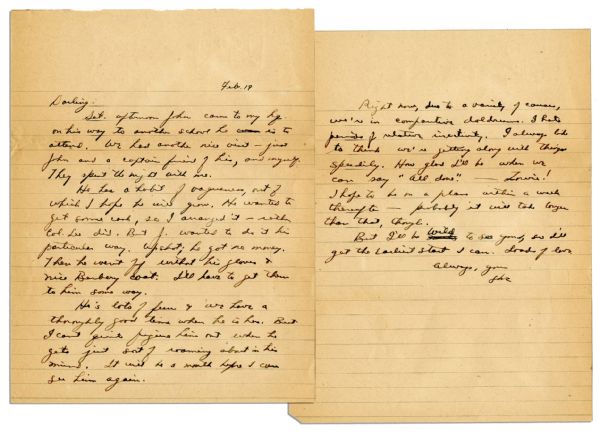 Feb. 19
Darling -
Sat. afternoon John came to my hq
on his way to another school he is to
attend. We had another nice visit - just
John and a captain friend of his, and myself.
They spent the night with me.
He has a habit of vagueness, out of
which I hope he will grow. He wanted to
get some cash, so I arranged it - with
Col. he did. But J. wanted to do it his
particular way. Upshot; he got no money.
Then he went off without his gloves &
nice Burberry coat. I'll have to get them
to him some way.
He's lots of fun & we have a
thoroughly good time when he is here. But
I can't quite figure him out when he
gets just sort of roaming about in his
mind. It will be a month before I can
see him again.
Right now, due to a variety of causes,
we're in comparative doldrums. I hate
periods of relative inertivity. I always like
to think we're getting along with things
speedily. How glad I'll be when we
can say "All done" -
I hope to be on a plane within a week
thereafter - probably it will take longer
than that, though.
But I'll be to see you, so I'll
get the earliest start I can. Loads of love
Always, your
Ike